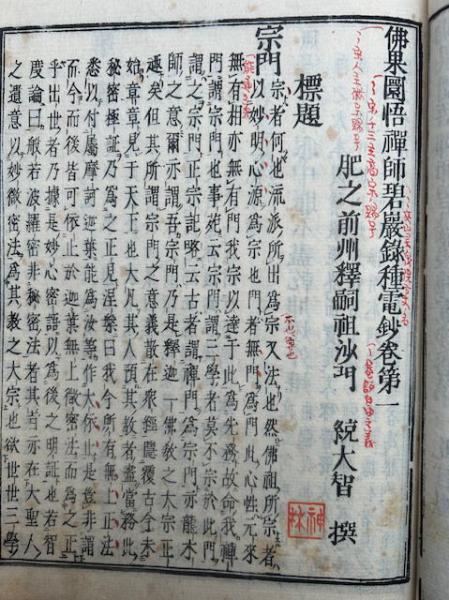 佛果圜悟禪師碧巖錄種電鈔卷第一
肥之前州釋嗣祖沙門 統大智 撰
標題
宗門 宗者何也流派所出爲宗又法也然佛祖所宗者
以妙明心源爲宗也門者無門爲門此心性元來
無有相亦無有門我宗以達于此爲先務故命我禪
門謂宗門也事苑云宗門謂三學者莫不宗於此門
謂之宗門正宗記略云古者謂禪門爲宗門亦龍木
師之意爾亦謂吾宗門乃是釋迦一佛教之大宗正
趣矣但其所謂宗門之意義散在衆經隱覆古今未
始章章見于天下也大凡其人預其教者盡當務此
秘密極證乃爲之正見涅槃曰我今所有無上正法
悉以付囑摩訶迦葉能爲汝等作大依止是豈非謂
而今而後皆可依止於迦葉無上微密法而爲之正
乎出世者乃據是妙心密語以爲後之明証也若智
度論曰般若波羅密非秘密法者其旨亦在大聖人
之遺意以妙微密法爲其教之大宗也欲世世三學
神林